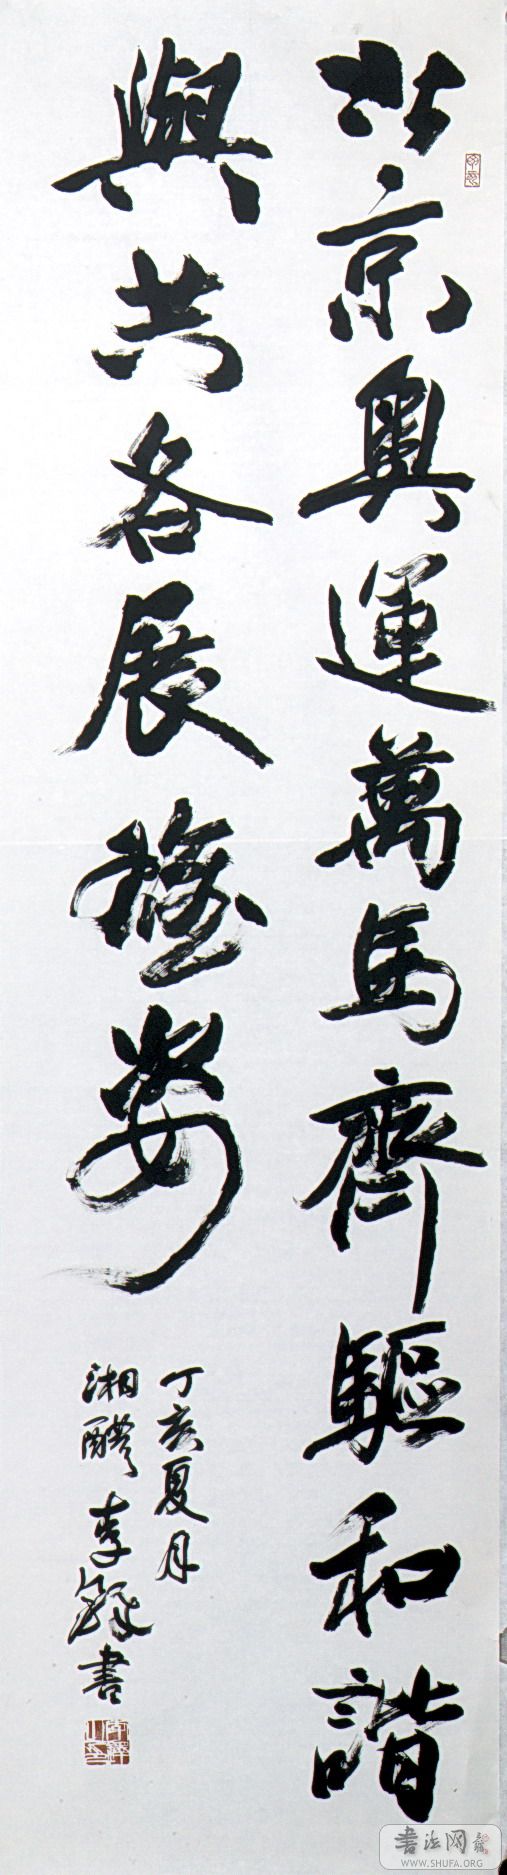 北京奧運萬馬齊驅和諧
與共各展雄姿
丁亥夏月
湘醴李鐸書
書法网
WWW.SHUFA.ORG